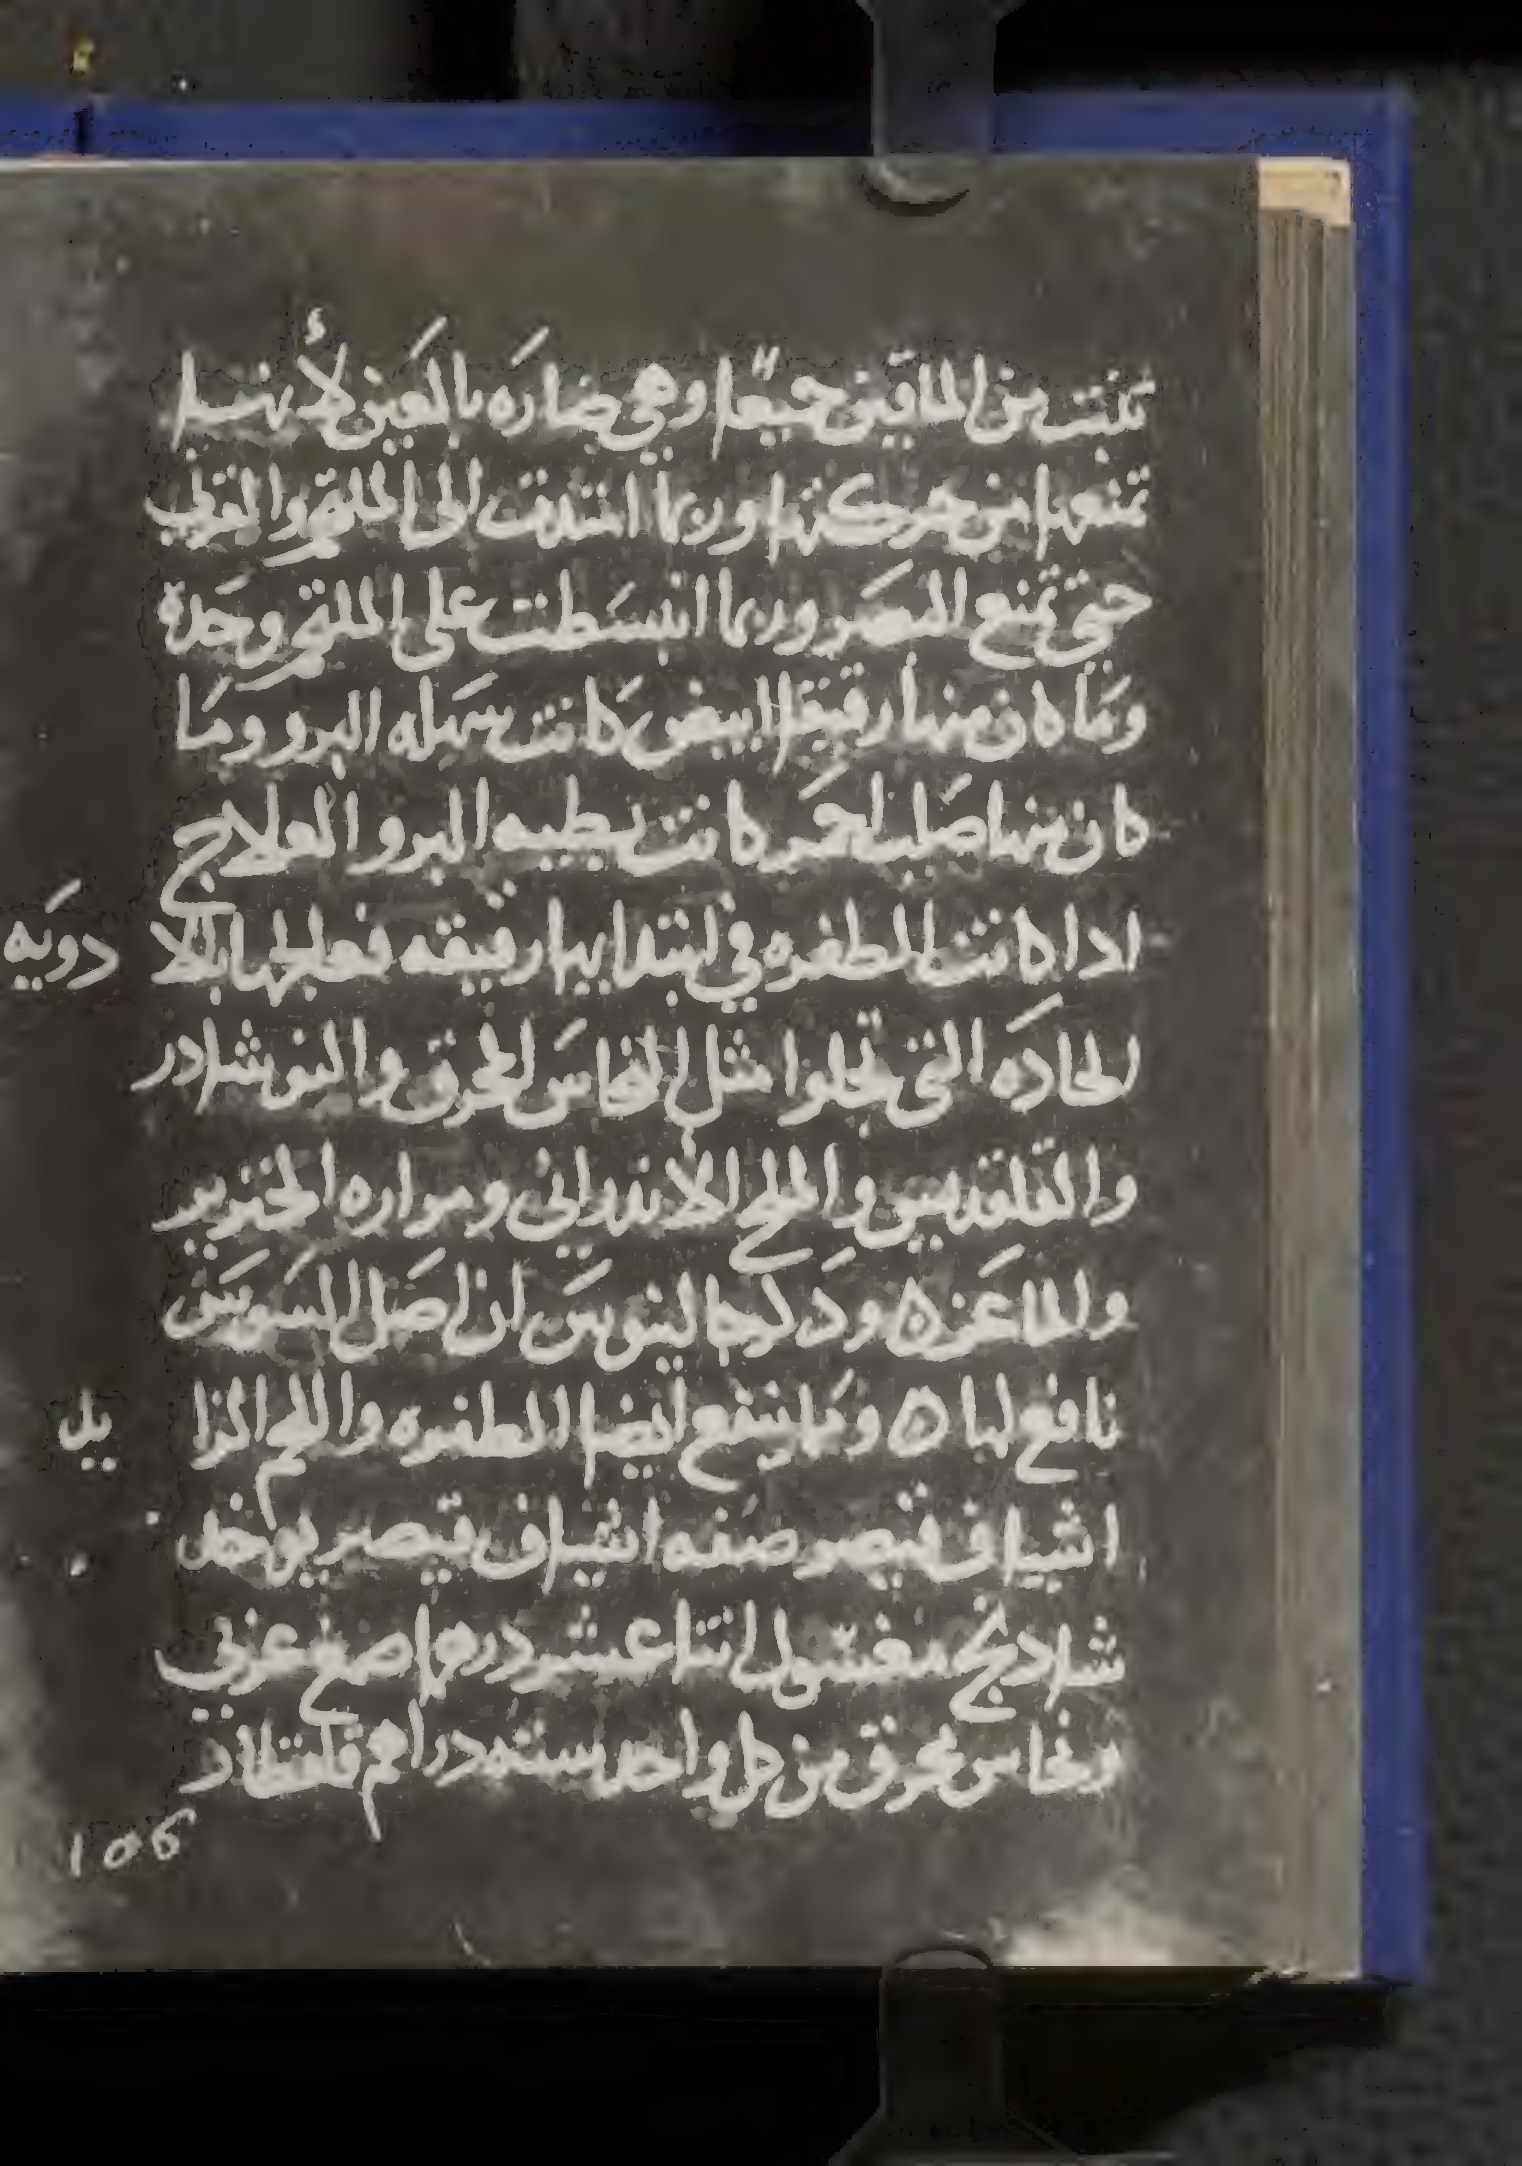 تنبت من الماقين جميعًا وهي ضارَه بالعَين لأنها
تمنعها من حركتها وربما امتدت الى الملتحم والقرني
حتى تمنع البصَر وربما انبسَطت على الملتحم وحَده
ومَا كان منها رقيقا ابيض كَانت سَهله البرو ومَا
كان منها صَلب احمَر كانت بطيه البرو العلاج
اذا كانت الطفره في ابتدايها رقيقه فعالجها بالا دويَه
الحادَه التي تجلوا مثل النحاسَ المحرق والنوشادر
والقلقديس والملح الأندراني ومراره الخنزير
والماعَز ٥ وذَكر جالينوسَ ان اصَل السَوسَن
نافع لها ٥ ومَما ينفع ايضا الطفره واللحم الزا يل
اشياف قيصر صفه اشياف قيصر يوخذ
شادنج مغسّول اثنا عشر درهما صمغ عربي
ونحاس محرق من كل واحد سته دراهم قلقطار
106